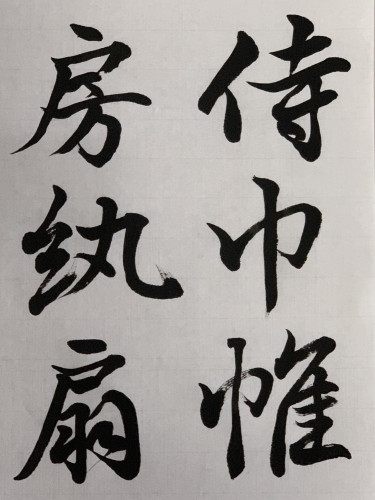 侍巾帷
房纨扇